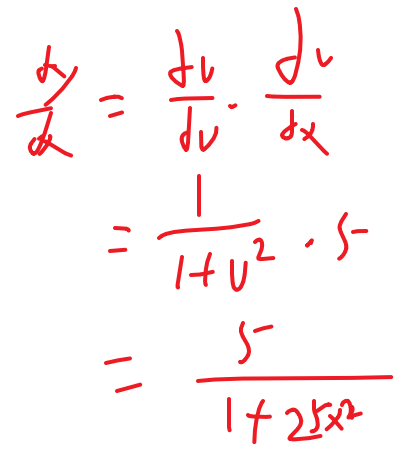 dy/dx = dv/dv · dv/dx
= 1/(1+v²) · 5
= 5/(1+25x²)